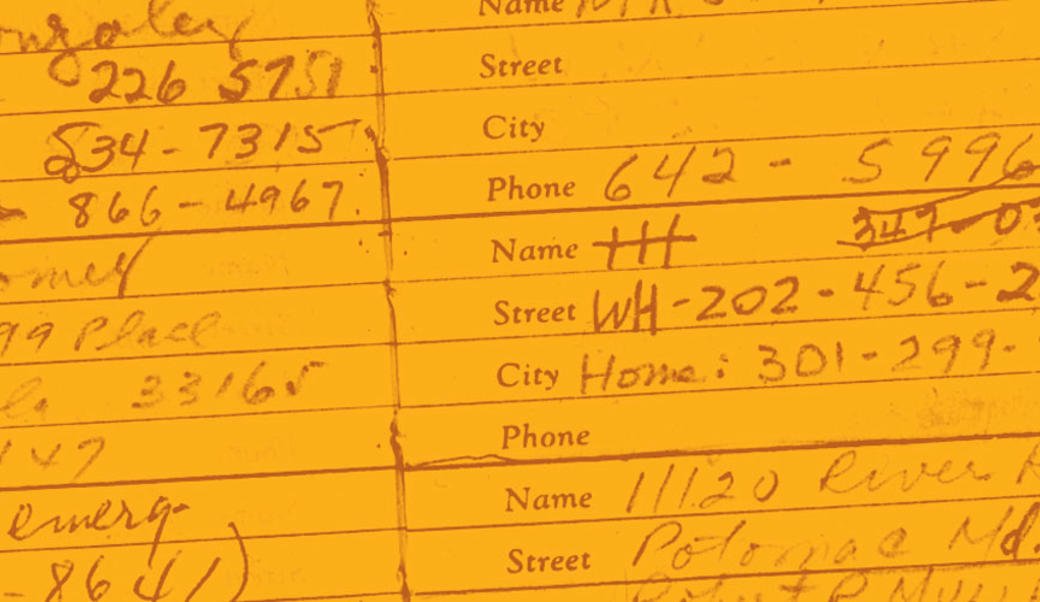 226 5751
834-7315
866-4967.
99 Place
33165
147
emerg
-8641)
Name
Street
City
Phone 642-5996
Name HH 347-03
Street WH-202-456-2
City Home: 301-299-
Phone
Name 11120 River R
Street Potomac Md.
Robert R